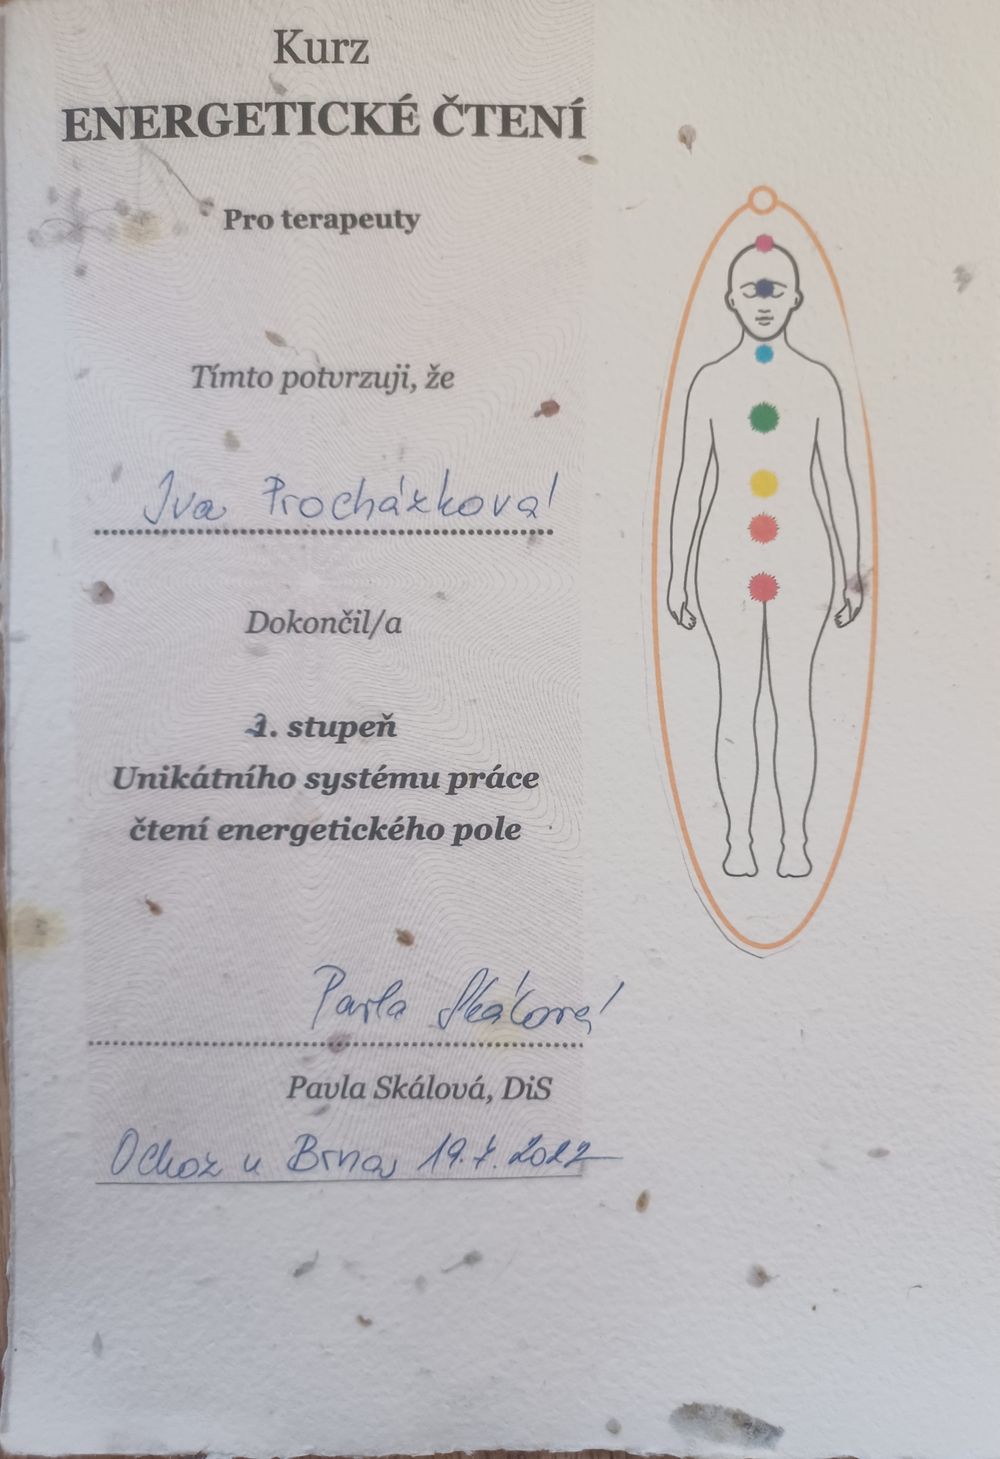 Kurz
ENERGETICKÉ ČTENÍ
Pro terapeuty
Tímto potvrzuji, že
Iva Procházková
Dokončil/a
2. stupeň
Unikátního systému práce
čtení energetického pole
Pavla Skálová
Pavla Skálová, DiS
Ochoz u Brna, 19.7.2022